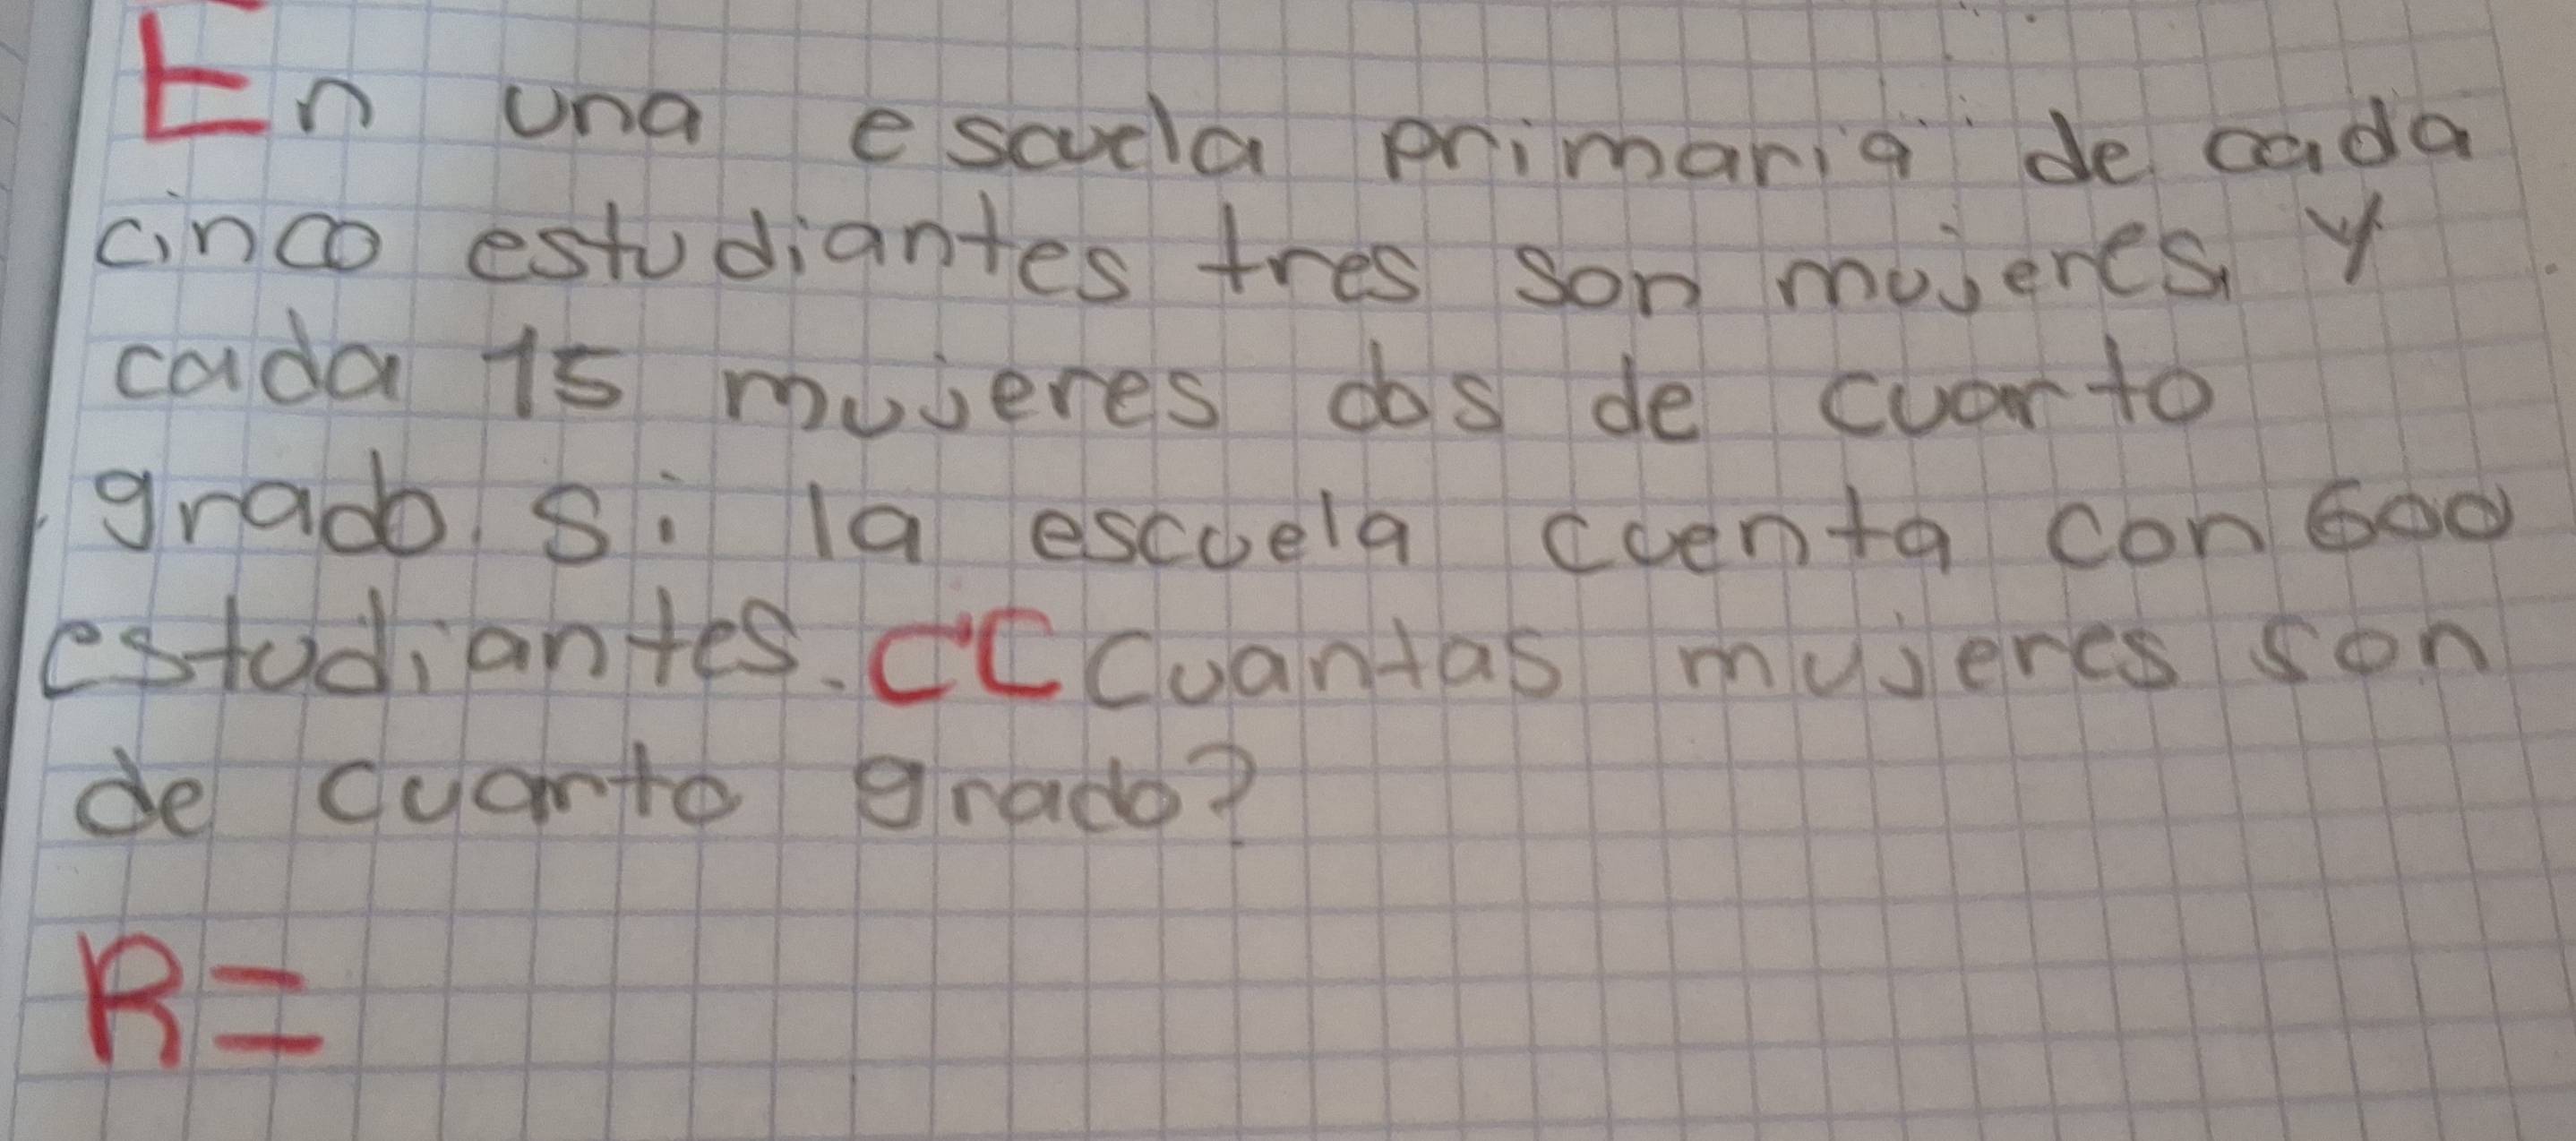 En una escuela primaria de cada
cinco estudiantes tres son mujeres, y
cada 15 mujeres dos de cuarto
grado. Si la escuela cuenta con 600
estudiantes. CC Cuantas mujeres son
de cuarto grado?
R=